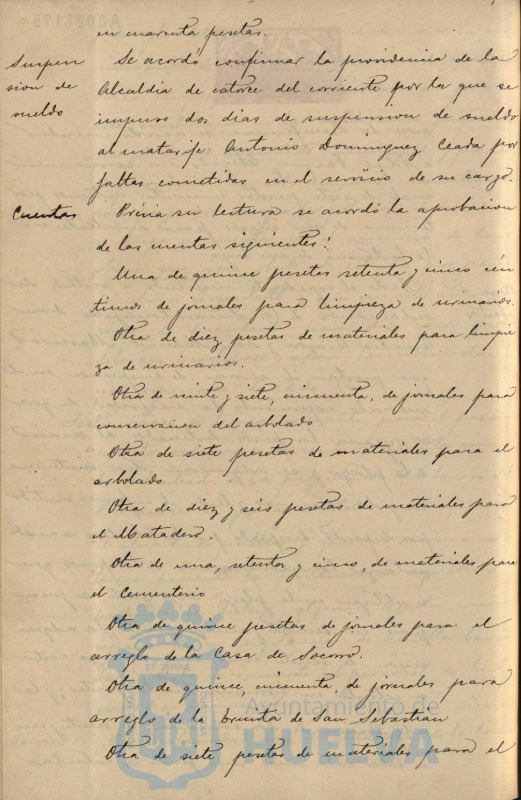 en cuarenta pesetas.
Suspen
sion de
sueldo
Se acordó confirmar la providencia de la
Alcaldia de catorce del corriente por la que se
impuso dos dias de suspension de sueldo
al matarife Antonio Dominguez Ceada por
faltas cometidas en el servicio de su cargo.
Cuentas
Prévia su lectura se acordó la aprobacion
de las cuentas siguientes:
Una de quince pesetas setenta y cinco cén
timos de jornales para limpieza de urinarios.
Otra de diez pesetas de materiales para limpie
za de urinarios.
Otra de veinte y siete, cincuenta, de jornales para
conservacion del arbolado.
Otra de siete pesetas de materiales para el
arbolado
Otra de diez y seis pesetas de materiales para
el Matadero
Otra de una, setenta y cinco, de materiales para
el Cementerio
Otra de quince pesetas de jornales para el
arreglo de la Casa de Socorro.
Otra de quince, cincuenta, de jornales para
arreglo de la Ermita de San Sebastian
Otra de siete pesetas de materiales para el
Ayuntamiento de
HUELVA